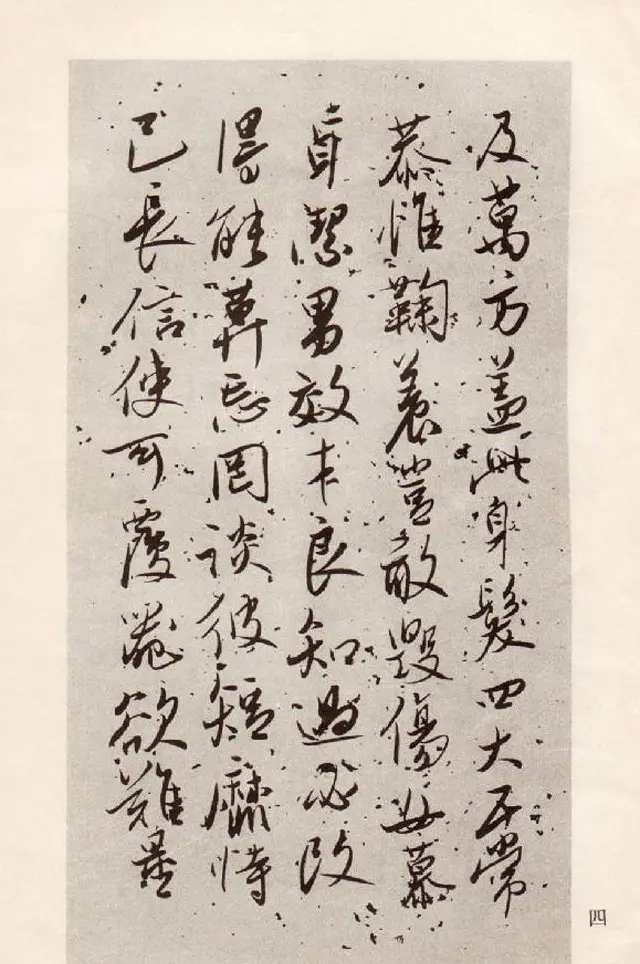 及萬方蓋此身髮四大五常
恭惟鞠養豈敢毀傷女慕
貞潔男效才良知過必改
得能莫忘罔談彼短靡恃
己長信使可覆器欲難量
四